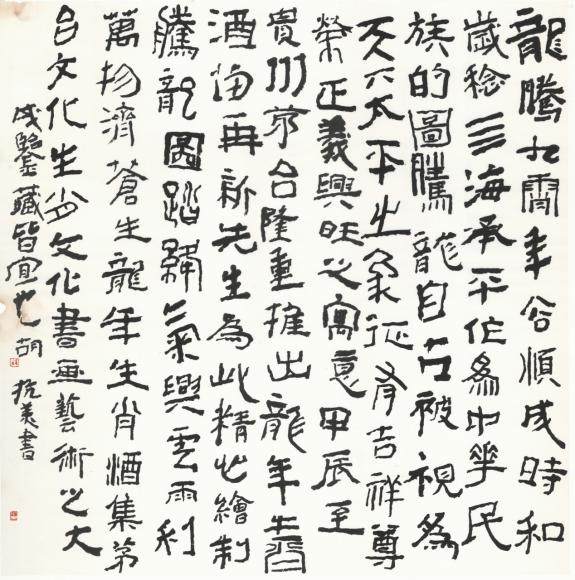 龍騰九霄年谷順成時和
歲稔亖海承平作為中華民
族的圖騰龍自古被視為
天下太平之象征有吉祥尊
榮正義興旺之寓意甲辰至
貴州茅台隆重推出龍年生肖
酒再新先生為此精心繪制
騰龍圖踏氣興雲雨利
萬物濟蒼生龍年生肖酒集茅
台文化生肖文化書畫藝術之大
成鑒藏皆宜也胡
抗美書